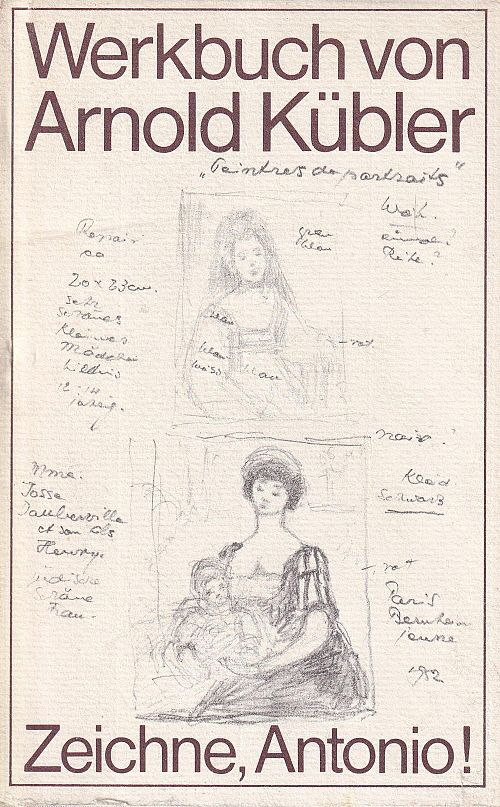 Werkbuch von
Arnold Kübler
„Peintres de portraits"
Woh.
Reihe?
grau
blau
20 x 23 cm.
sehr
schönes
kleines
Mädchen
bildnis
12-14
jährig.
blau
rot
blau
weiss
blau
noir?
Kleid
Schwarz
Mme.
Josse
et son fils
Henry.
jüdische
schöne
Frau.
rot
Paris
Bernheim
jeune
1952
Zeichne, Antonio!